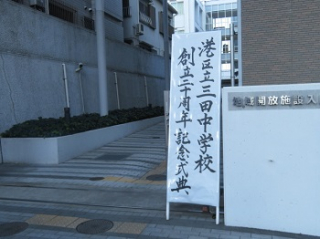 港区立三田中学校
創立二十周年記念式典
開放施設入